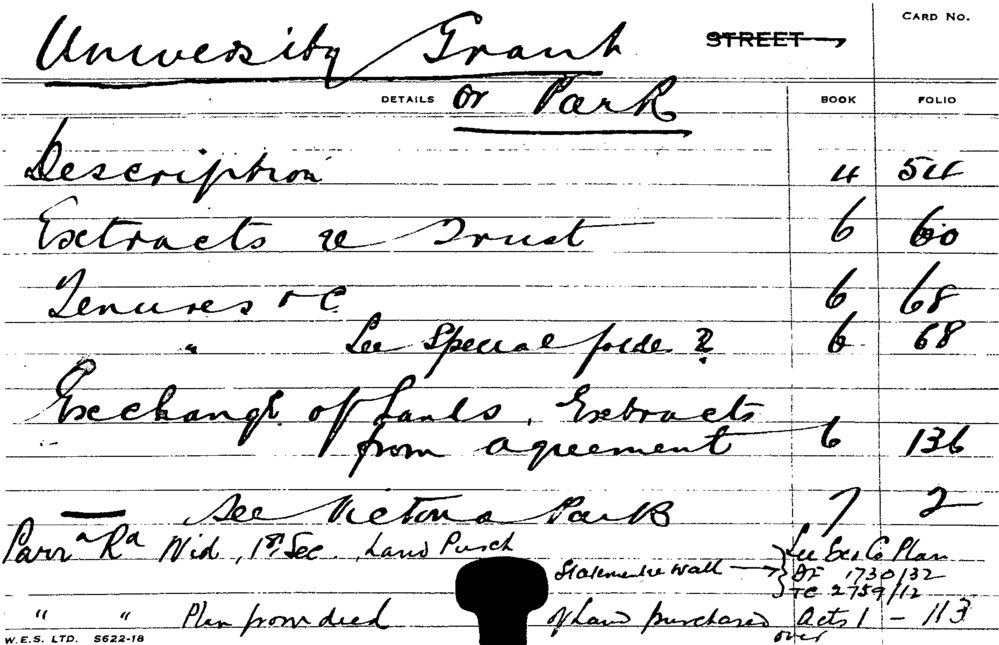 CARD No.
University Grant STREET
DETAILS or Park BOOK FOLIO
Description 4 54
Extracts re Trust 6 60
Tenures & C 6 68
" See Special folder ? 6 68
Exchange of Lands, Extracts
from agreement 6 136
— See Victoria Park 7 2
Parrᵃ Rd Wid, 1st Sec, Land Purch See Plan
Statement re Wall 1730/32
TC 2759/12
" " Plan from deed of Land purchased Acts 1 - 113
over
W.E.S. LTD. S622-18